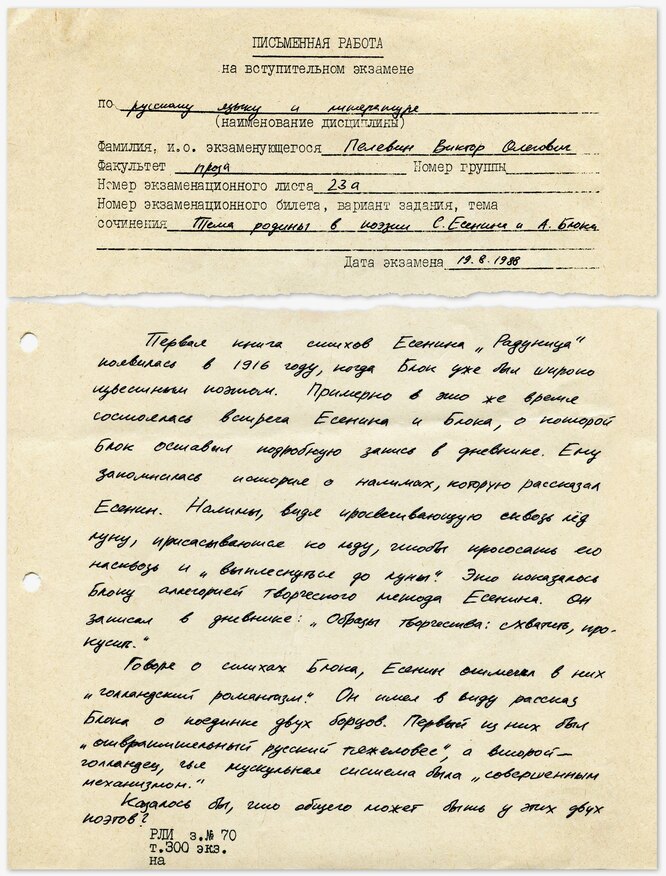 ПИСЬМЕННАЯ РАБОТА
на вступительном экзамене
по русскому языку и литературе
(наименование дисциплины)
Фамилия, и.о. экзаменующегося Пелевин Виктор Олегович
Факультет проза Номер группы
Номер экзаменационного листа 23а
Номер экзаменационного билета, вариант задания, тема
сочинения Тема родины в поэзии С. Есенина и А. Блока
Дата экзамена 19.8.1988
Первая книга стихов Есенина „Радуница“
появилась в 1916 году, когда Блок уже был широко
известным поэтом. Примерно в это же время
состоялась встреча Есенина и Блока, о которой
Блок оставил подробную запись в дневнике. Ему
запомнилась история о налимах, которую рассказал
Есенин. Налимы, видя просвечивающую сквозь лёд
луну, присасываются ко льду, чтобы прососать его
насквозь и „выплеснуться до луны“. Это показалось
Блоку аллегорией творческого метода Есенина. Он
записал в дневнике: „Образы творчества: схватить, про-
кусить.“
Говоря о стихах Блока, Есенин отмечал в них
„голландский романтизм“. Он имел в виду рассказ
Блока о поединке двух борцов. Первый из них был
„отвратительный русский тяжеловес“, а второй —
голландец, чья мускульная система была „совершенным
механизмом.“
Казалось бы, что общего может быть у этих двух
поэтов?
РЛИ з.№ 70
т.300 экз.
на